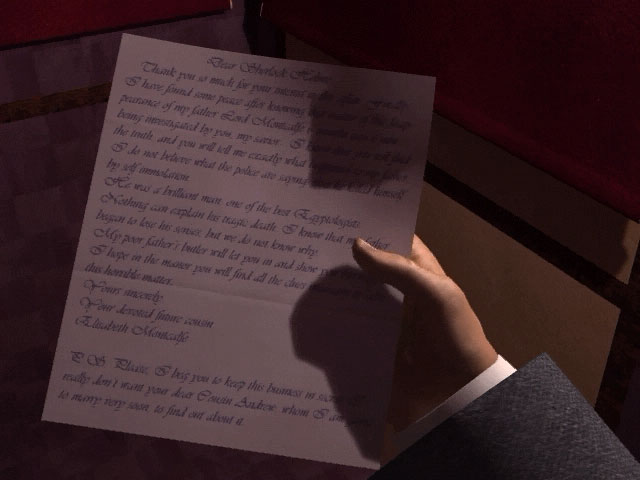 Dear Sherlock Holmes
Thank you so much for your interest in this affair. I really
I have found some peace after knowing that matter of the disap-
pearance of my father Lord Montcalfe
being investigated by you, my savior. I know that you will find
the truth, and you will tell me exactly what my father
I do not believe what the police are saying that he killed himself
by self immolation.
He was a brilliant man, one of the best Egyptologists.
Nothing can explain his tragic death. I know that my father
began to lose his senses, but we do not know why.
My poor father's butler will let you in and show you
I hope in the manor you will find all the clues
this horrible matter.
Yours sincerely,
Your devoted future cousin
Elisabeth Montcalfe
P. S. Please, I beg you to keep this business in
really don't want your dear Cousin Andrew, whom I am
to marry very soon, to find out about it.